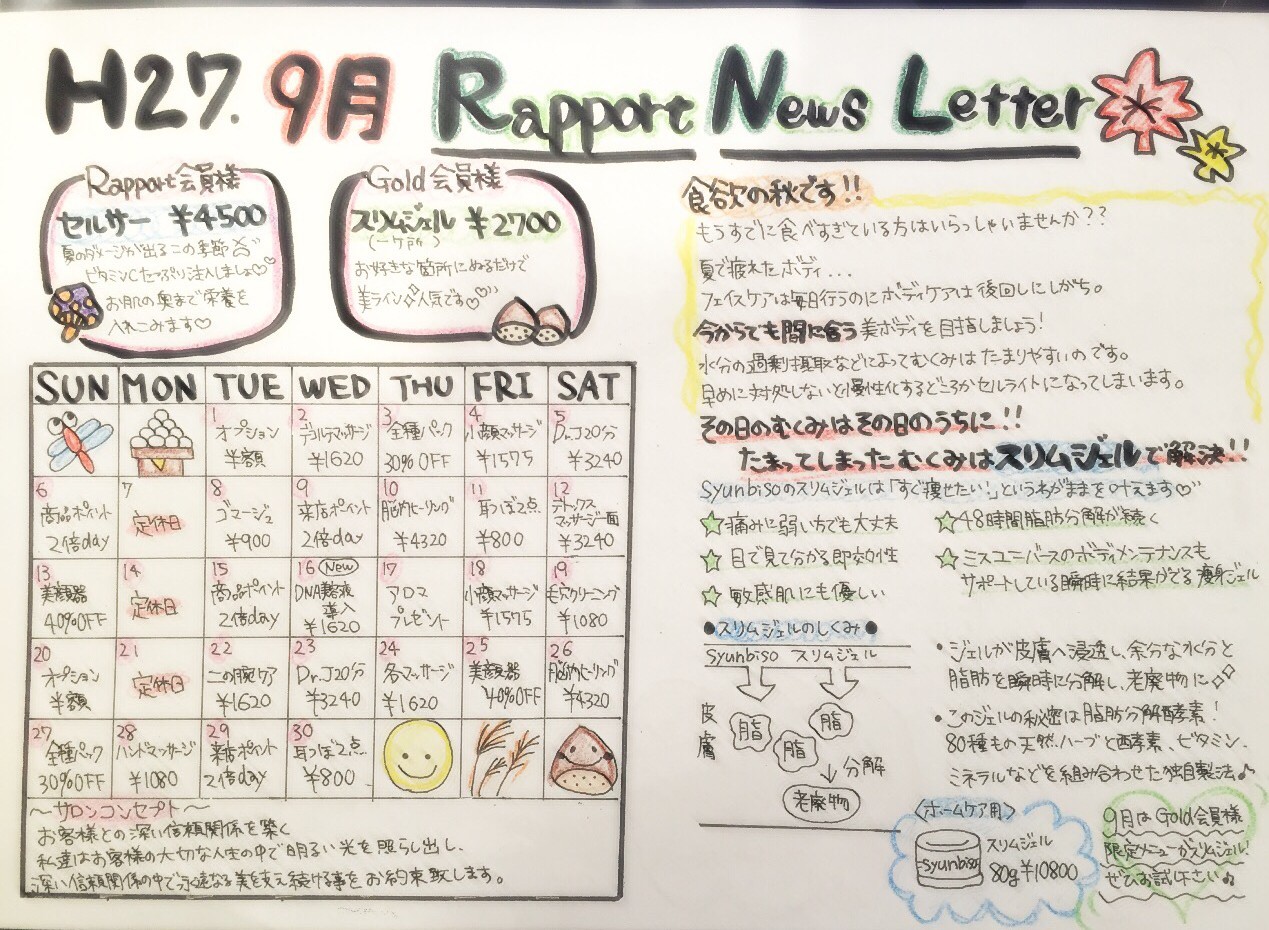 H27. 9月 Rapport News Letter
Rapport会員様
セルサー ¥4500
夏のダメージが出るこの季節
ビタミンCたっぷり注入しましょ♡♡
お肌の奥まで栄養を
入れこみます♡
Gold会員様
スリムジェル ¥2700
(一ヶ所)
お好きな箇所にぬるだけで
美ライン 人気です♡
SUN MON TUE WED THU FRI SAT
1 オプション 半額
2 デコルテマッサージ ¥1620
3 全種パック 30%OFF
4 小顔マッサージ ¥1575
5 Dr.J20分 ¥3240
6 商品ポイント 2倍day
7 定休日
8 ゴマージュ ¥900
9 来店ポイント 2倍day
10 脳内ヒーリング ¥4320
11 耳つぼ2点 ¥800
12 デトックスマッサージ一面 ¥3240
13 美顔器 40%OFF
14 定休日
15 商品ポイント 2倍day
16 New DNA美容液導入 ¥1620
17 アロマプレゼント
18 小顔マッサージ ¥1575
19 毛穴クリーニング ¥1080
20 オプション 半額
21 定休日
22 二の腕ケア ¥1620
23 Dr.J20分 ¥3240
24 各マッサージ ¥1620
25 美顔器 40%OFF
26 脳内ヒーリング ¥4320
27 全種パック 30%OFF
28 ハンドマッサージ ¥1080
29 来店ポイント 2倍day
30 耳つぼ2点 ¥800
〜サロンコンセプト〜
お客様との深い信頼関係を築く
私達はお客様の大切な人生の中で明るい光を照らし出し、
深い信頼関係の中で永遠なる美を支え続ける事をお約束致します。
食欲の秋です!!
もうすでに食べすぎている方はいらっしゃいませんか??
夏で疲れたボディ...
フェイスケアは毎日行うのにボディケアは後回しにしがち。
今からでも間に合う美ボディを目指しましょう!
水分の過剰摂取などによってむくみはたまりやすいのです。
早めに対処しないと慢性化するどころかセルライトになってしまいます。
その日のむくみはその日のうちに!!
たまってしまったむくみはスリムジェルで解決!!
Syunbisoのスリムジェルは「すぐ痩せたい」というわがままを叶えます♡
☆痛みに弱い方でも大丈夫
☆目で見て分かる即効性
☆敏感肌にも優しい
☆48時間脂肪分解が続く
☆ミスユニバースのボディメンテナンスも
サポートしている瞬時に結果がでる痩身ジェル
●スリムジェルのしくみ●
Syunbiso スリムジェル
皮膚
脂
脂
脂
分解
老廃物
・ジェルが皮膚へ浸透し、余分な水分と
脂肪を瞬時に分解し、老廃物に
・このジェルの秘密は脂肪分解酵素!
80種もの天然ハーブと酵素、ビタミン、
ミネラルなどを組み合わせた独自製法♪
〈ホームケア用〉
syunbiso
スリムジェル
80g¥10800
9月はGold会員様
限定メニューがスリムジェル!
ぜひお試し下さい♪